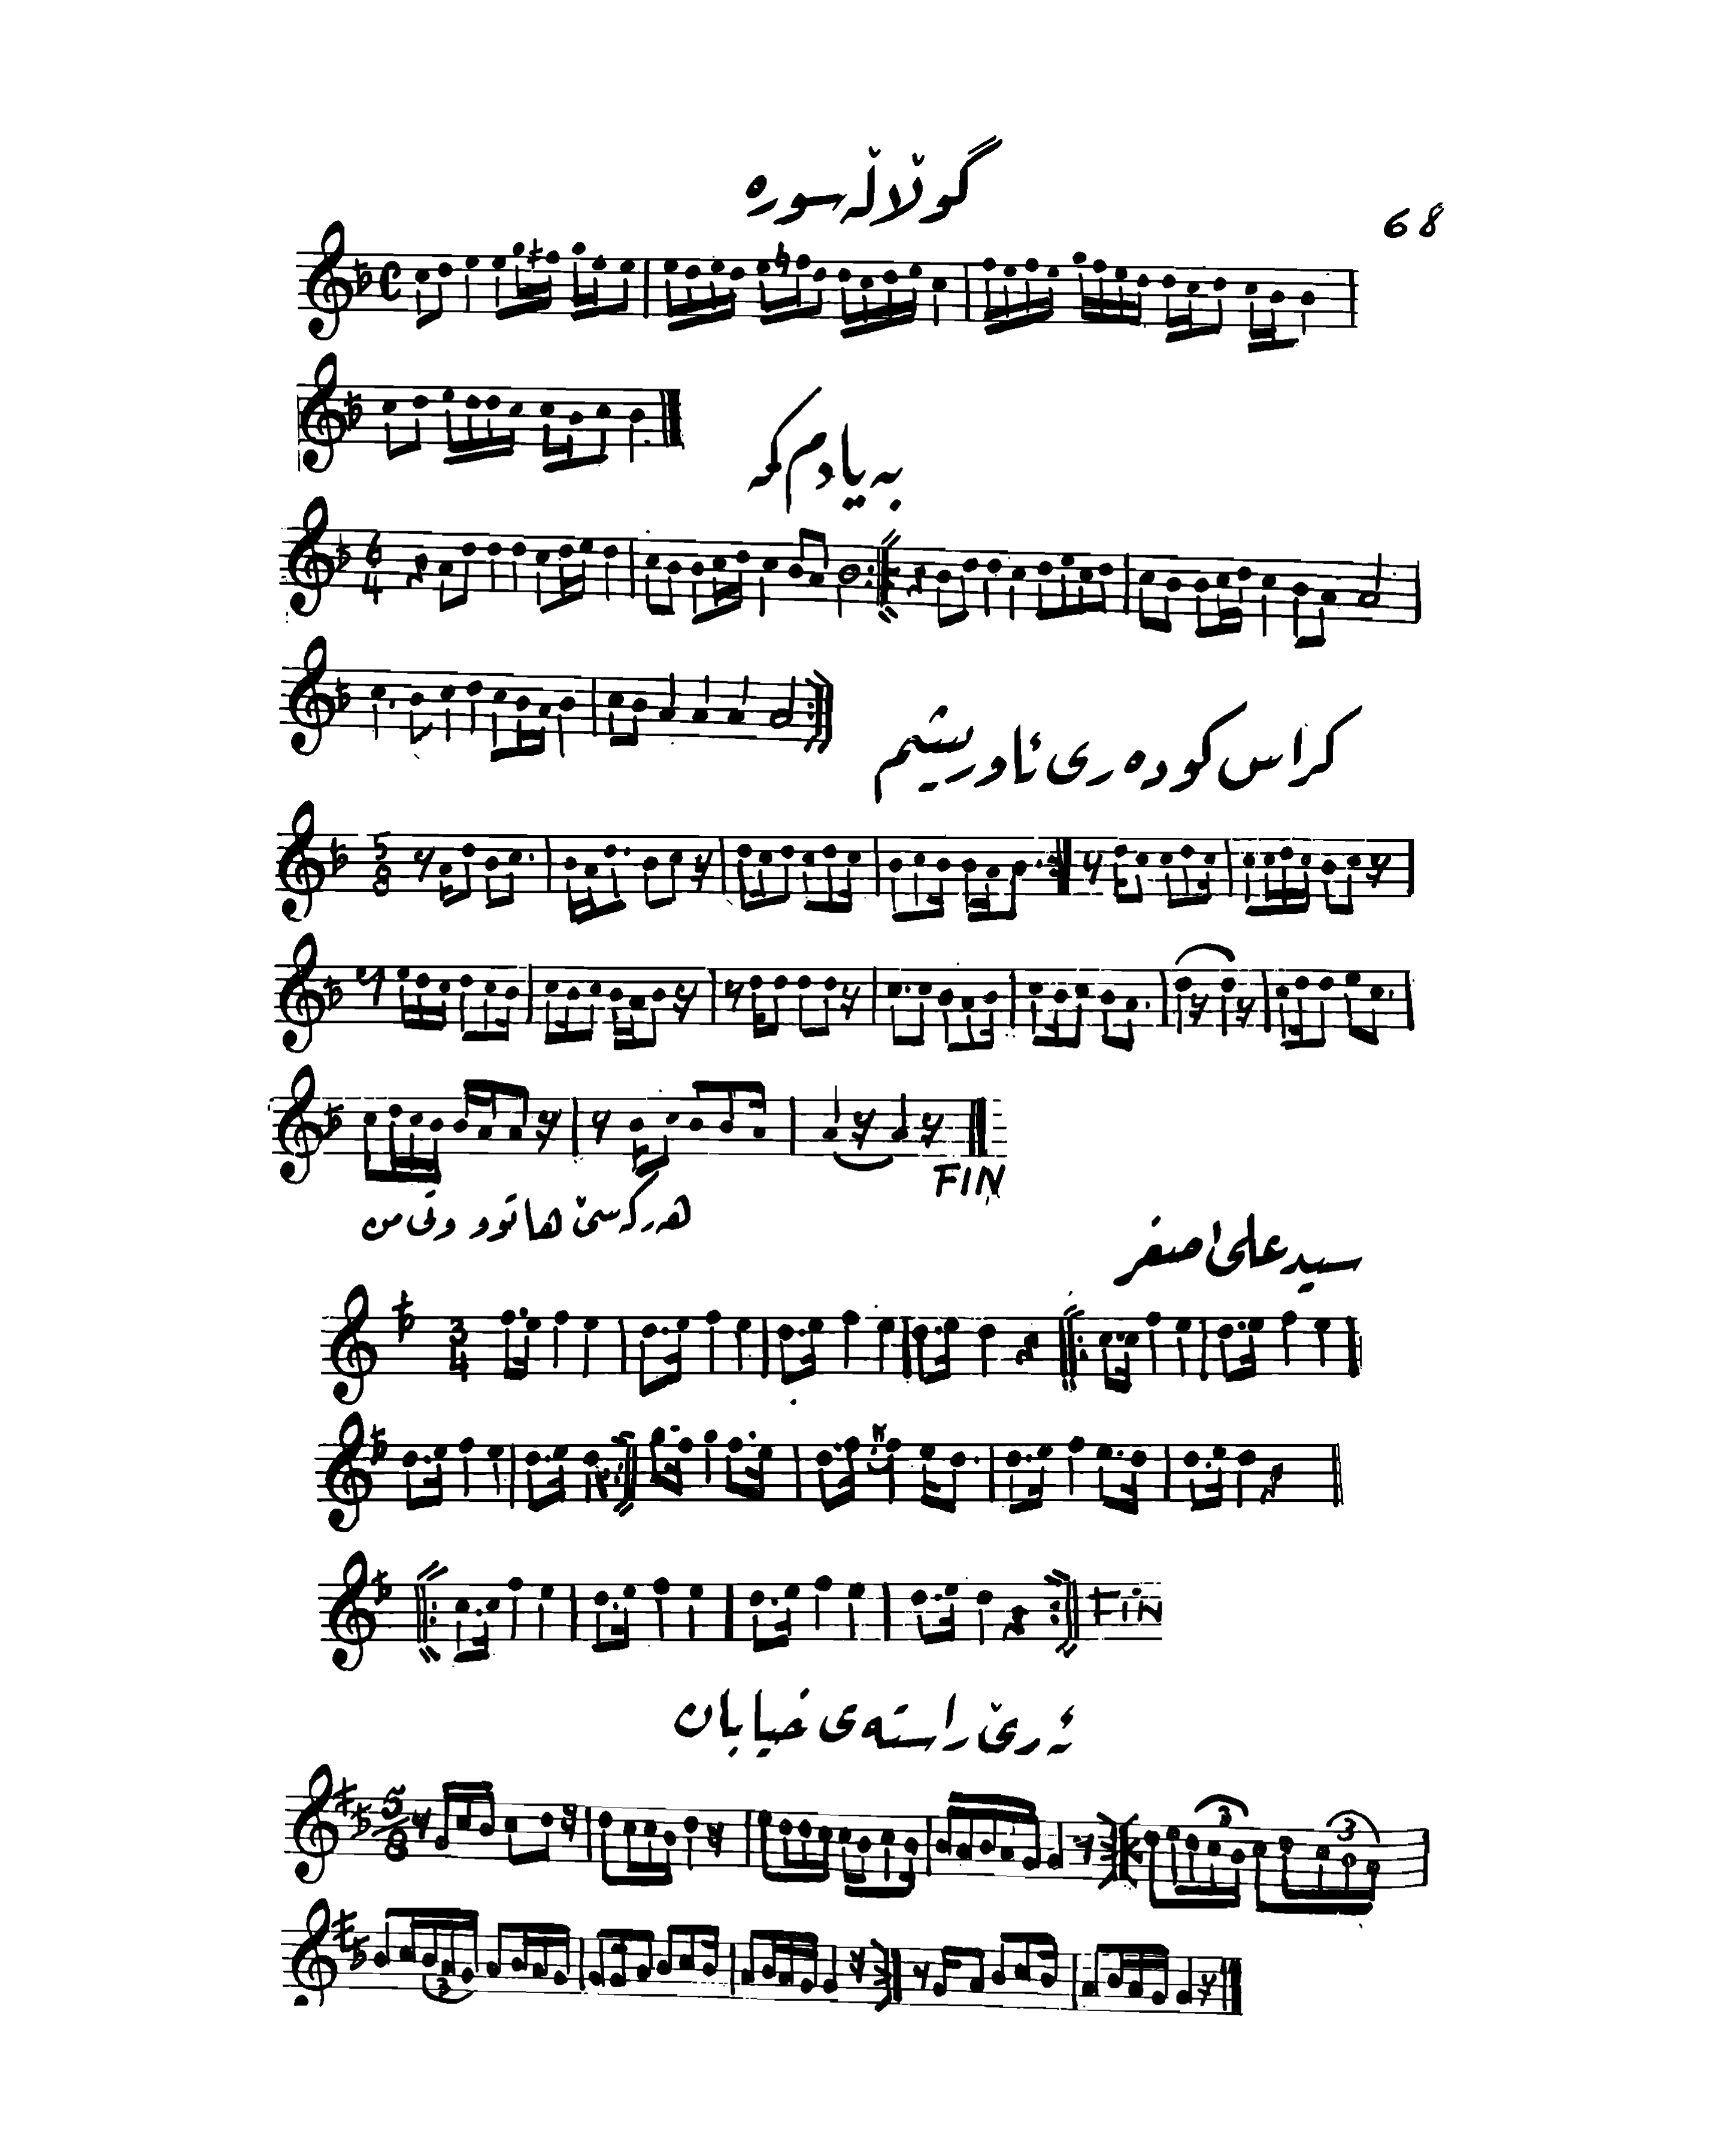 گوڵاڵە سورە
68
بە یادم کە
کراس کودەری ئاوریشم
FIN
هەرکەسێ هاتوو وتی من
سید علی اصغر
FIN
ئەرێ راستەی خیابان